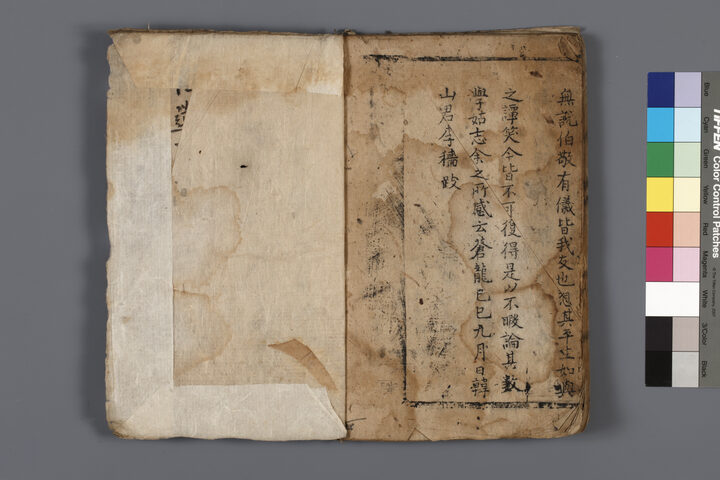 無說伯敬有儀皆我友也想其平生如與
之譚笑今皆不可復得是以不暇論其數
學姑志余之所感云蒼龍己巳九月日韓
山君李穡跋
TIFFEN Color Control Patches
© The Tiffen Company, 2007
Blue
Cyan
Green
Yellow
Red
Magenta
White
3/Color
Black